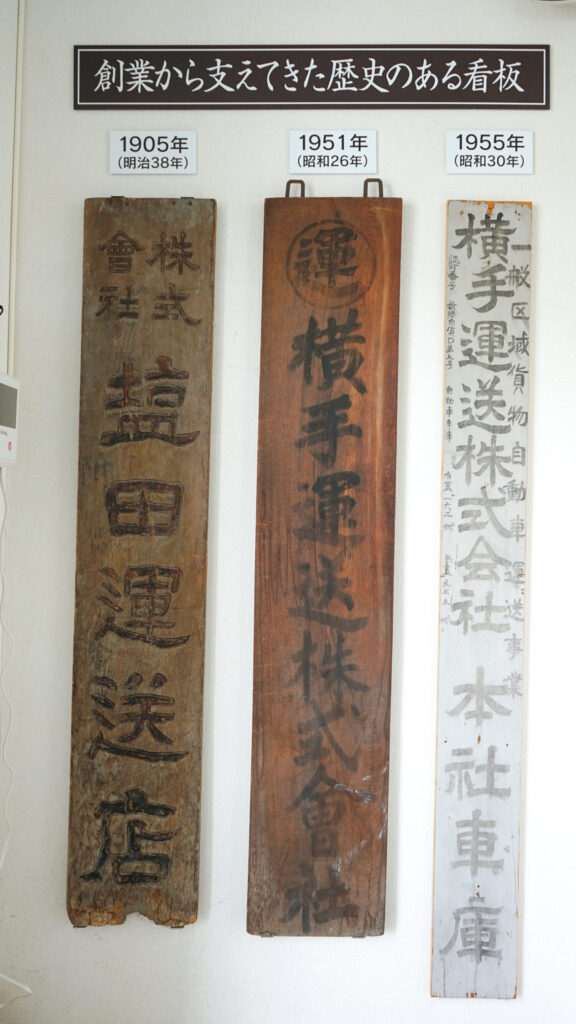 創業から支えてきた歴史のある看板
1905年
(明治38年)
1951年
(昭和26年)
1955年
(昭和30年)
株式
會社
塩田運送店
運
横手運送株式會社
一般区域貨物自動車運送事業
横手運送株式会社 本社車庫
認可番号
自動車車庫